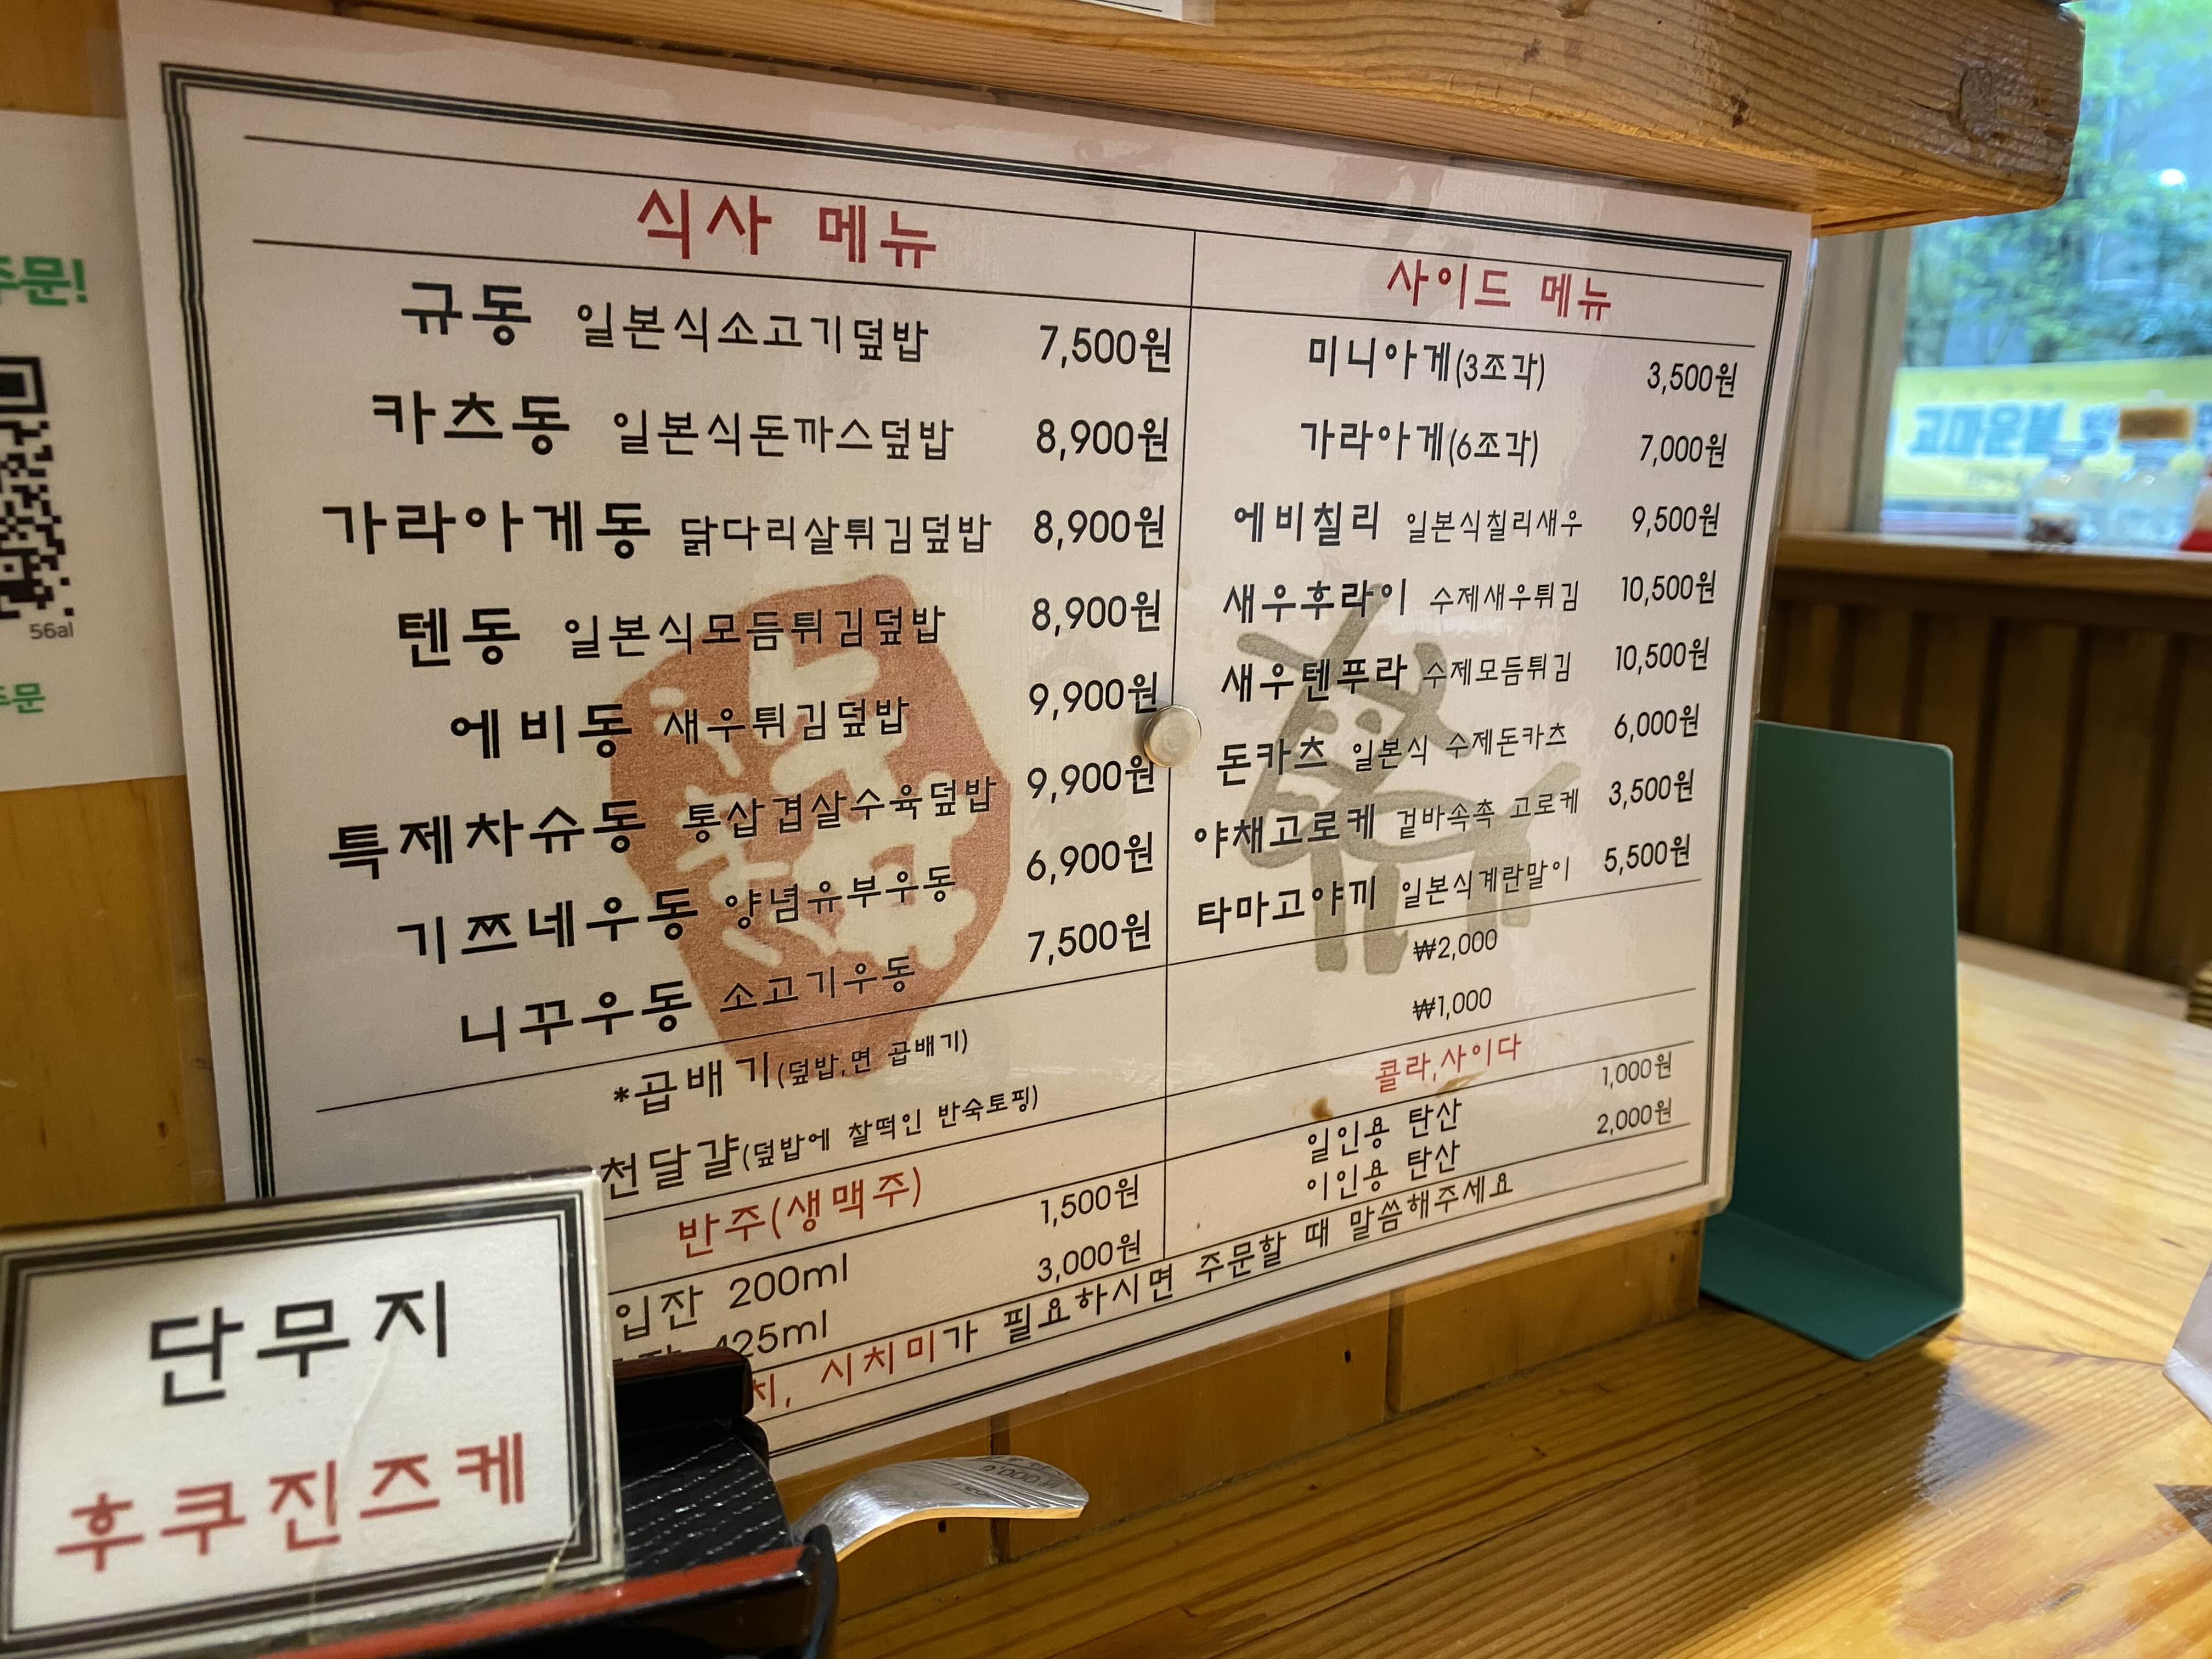 식사 메뉴
규동 일본식소고기덮밥 7,500원
카츠동 일본식돈까스덮밥 8,900원
가라아게동 닭다리살튀김덮밥 8,900원
텐동 일본식모듬튀김덮밥 8,900원
에비동 새우튀김덮밥 9,900원
특제차슈동 통삽겹살수육덮밥 9,900원
기쯔네우동 양념유부우동 6,900원
니꾸우동 소고기우동 7,500원
*곱배기(덮밥,면 곱배기) ₩2,000
천달걀(덮밥에 찰떡인 반숙토핑) ₩1,000
반주(생맥주)
입잔 200ml 1,500원
425ml 3,000원
사이드 메뉴
미니아게(3조각) 3,500원
가라아게(6조각) 7,000원
에비칠리 일본식칠리새우 9,500원
새우후라이 수제새우튀김 10,500원
새우텐푸라 수제모듬튀김 10,500원
돈카츠 일본식 수제돈카츠 6,000원
야채고로케 겉바속촉 고로케 3,500원
타마고야끼 일본식계란말이 5,500원
콜라,사이다
일인용 탄산 1,000원
이인용 탄산 2,000원
치, 시치미가 필요하시면 주문할 때 말씀해주세요
단무지
후쿠진즈케
주문!
56al
주문